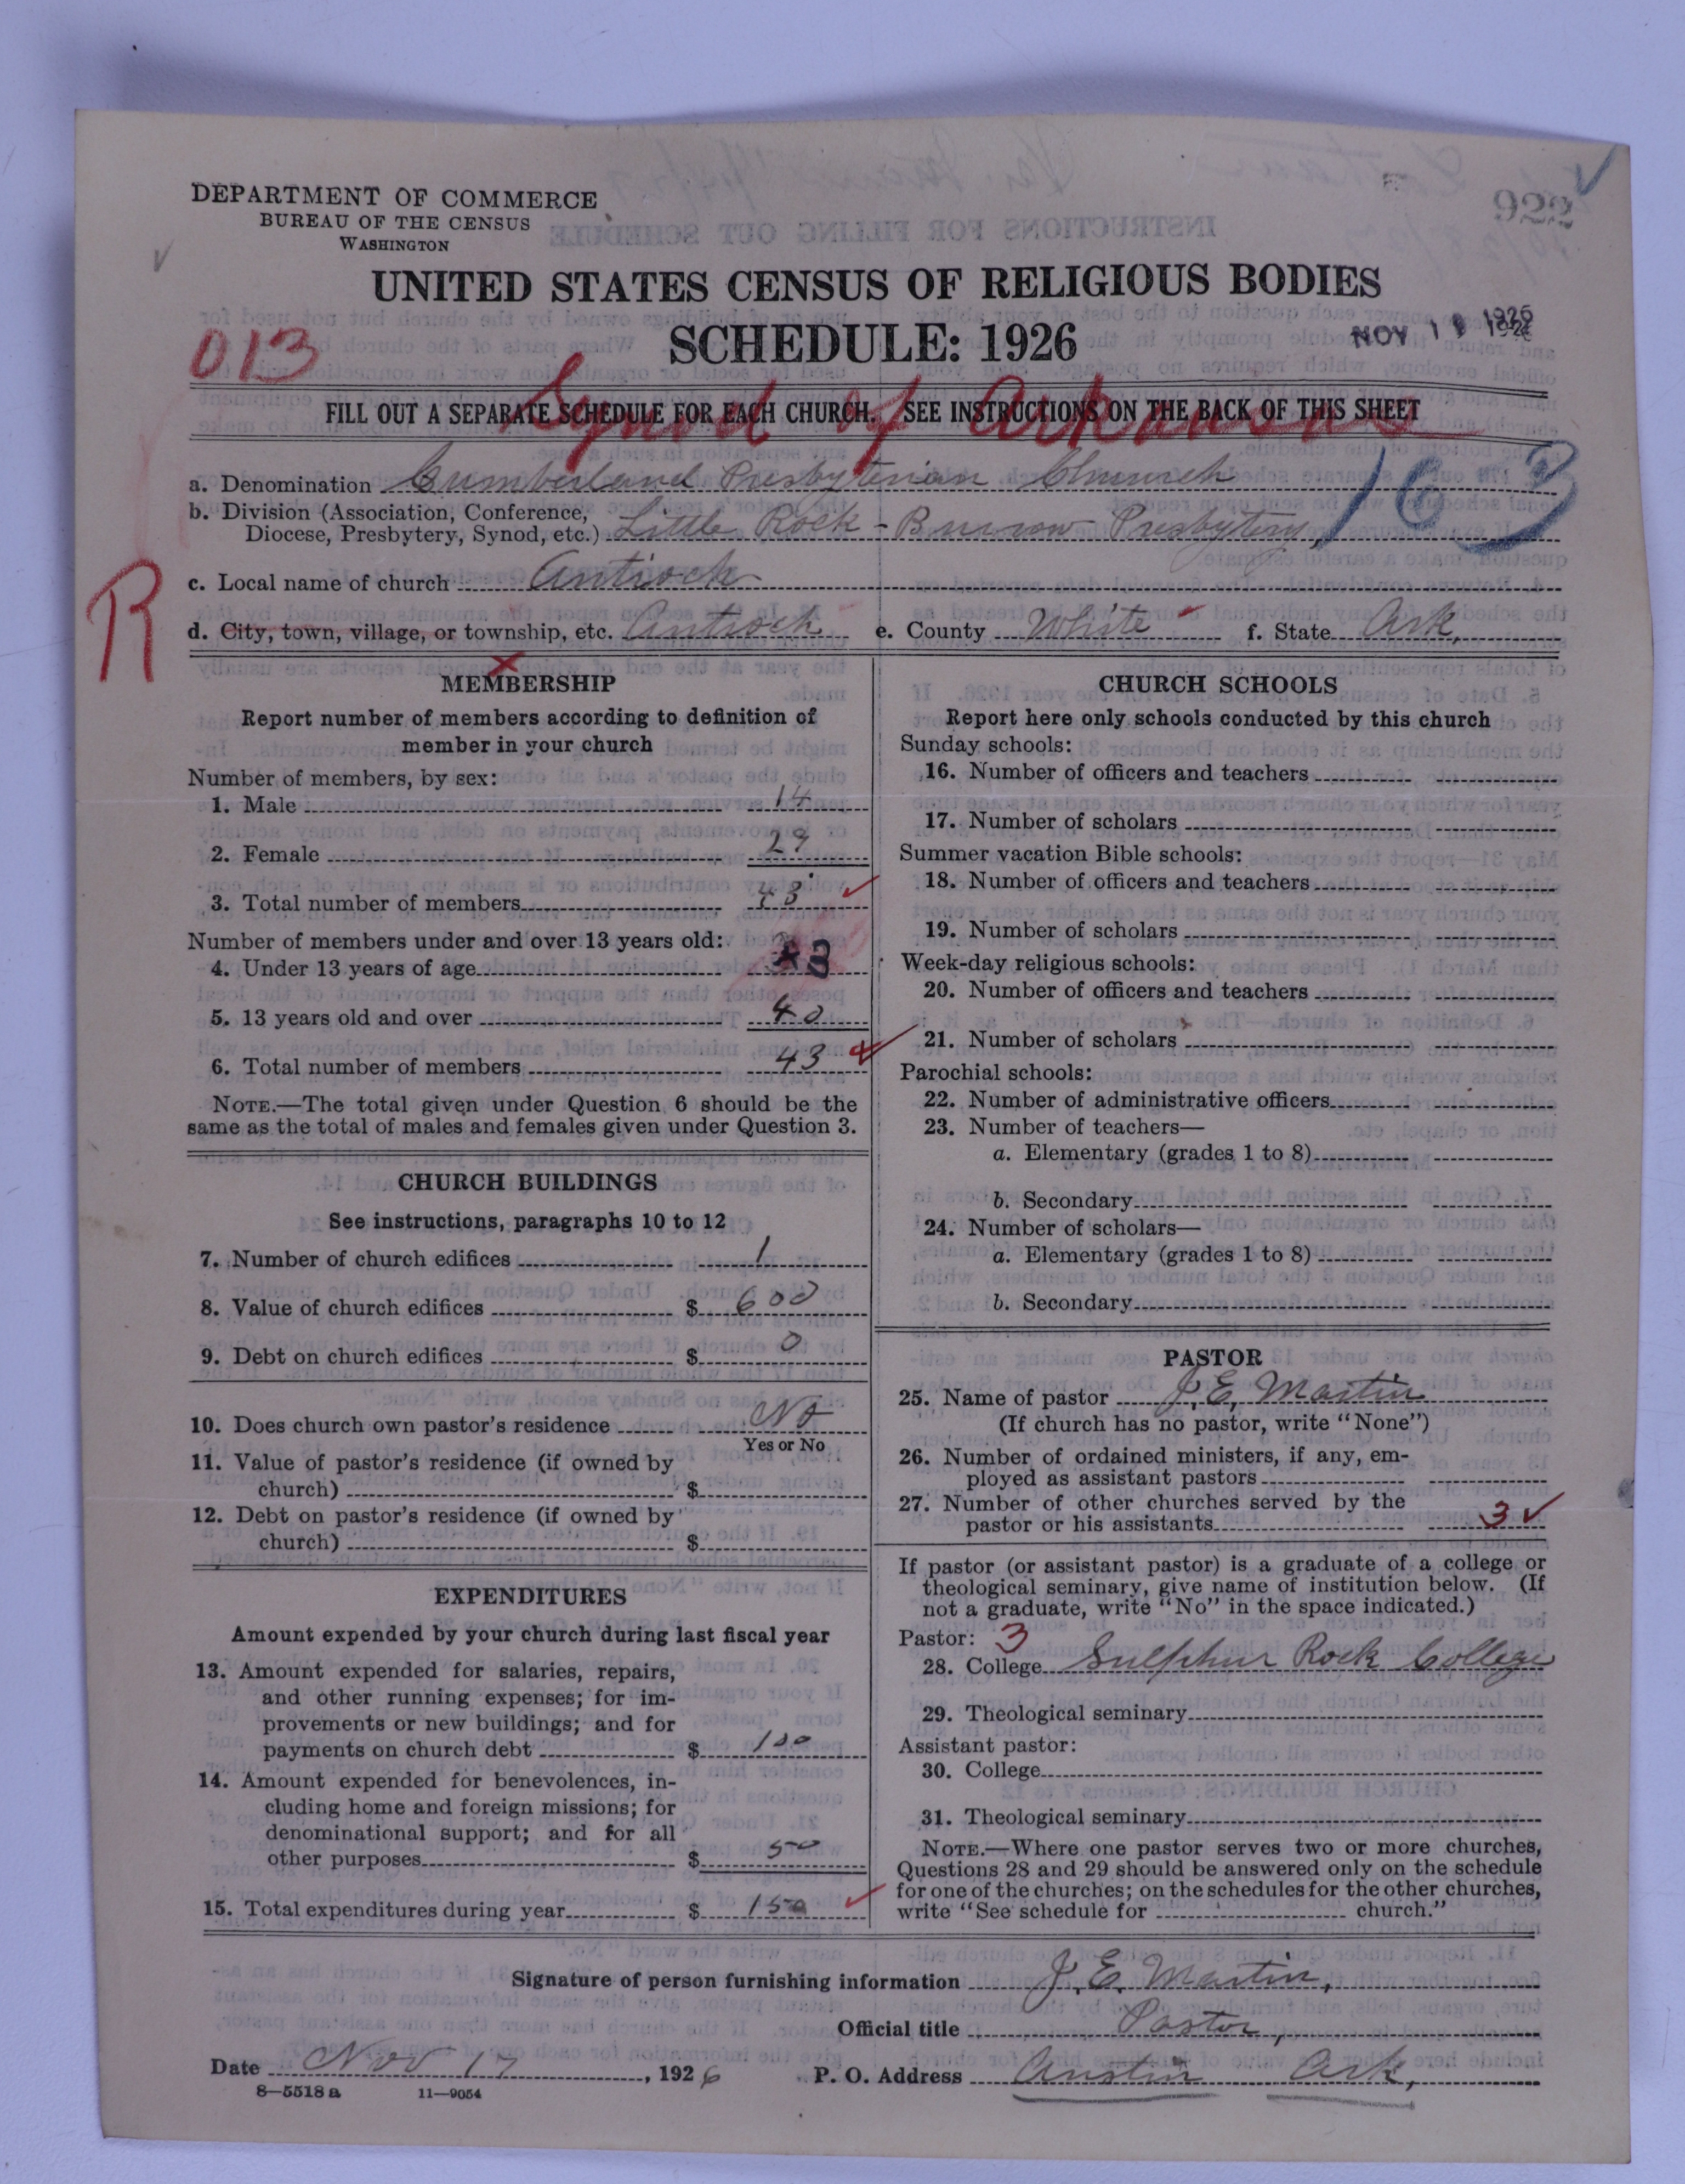 DEPARTMENT OF COMMERCE
BUREAU OF THE CENSUS
WASHINGTON
922
UNITED STATES CENSUS OF RELIGIOUS BODIES
SCHEDULE: 1926
013
NOV 1 1926
Synod of Arkansas
FILL OUT A SEPARATE SCHEDULE FOR EACH CHURCH. SEE INSTRUCTIONS ON THE BACK OF THIS SHEET
a. Denomination Cumberland Presbyterian Church
163
b. Division (Association, Conference,
Diocese, Presbytery, Synod, etc.) Little Rock - Burrow Presbytery,
R
c. Local name of church Antioch
d. City, town, village, or township, etc. Antioch e. County White f. State Ark,
MEMBERSHIP
Report number of members according to definition of
member in your church
Number of members, by sex:
1. Male 14
2. Female 29
3. Total number of members 43
Number of members under and over 13 years old:
4. Under 13 years of age 3
5. 13 years old and over 40
6. Total number of members 43
NOTE.—The total given under Question 6 should be the
same as the total of males and females given under Question 3.
CHURCH BUILDINGS
See instructions, paragraphs 10 to 12
7. Number of church edifices 1
8. Value of church edifices $ 600
9. Debt on church edifices $ 0
10. Does church own pastor's residence No
Yes or No
11. Value of pastor's residence (if owned by
church) $
12. Debt on pastor's residence (if owned by
church) $
EXPENDITURES
Amount expended by your church during last fiscal year
13. Amount expended for salaries, repairs,
and other running expenses; for im-
provements or new buildings; and for
payments on church debt $ 100
14. Amount expended for benevolences, in-
cluding home and foreign missions; for
denominational support; and for all
other purposes $ 50
15. Total expenditures during year $ 150
CHURCH SCHOOLS
Report here only schools conducted by this church
Sunday schools:
16. Number of officers and teachers
17. Number of scholars
Summer vacation Bible schools:
18. Number of officers and teachers
19. Number of scholars
Week-day religious schools:
20. Number of officers and teachers
21. Number of scholars
Parochial schools:
22. Number of administrative officers
23. Number of teachers—
a. Elementary (grades 1 to 8)
b. Secondary
24. Number of scholars—
a. Elementary (grades 1 to 8)
b. Secondary
PASTOR
25. Name of pastor J. E. Martin
(If church has no pastor, write "None")
26. Number of ordained ministers, if any, em-
ployed as assistant pastors
27. Number of other churches served by the
pastor or his assistants 3
If pastor (or assistant pastor) is a graduate of a college or
theological seminary, give name of institution below. (If
not a graduate, write "No" in the space indicated.)
Pastor: 3
28. College Sulphur Rock College
29. Theological seminary
Assistant pastor:
30. College
31. Theological seminary
NOTE.—Where one pastor serves two or more churches,
Questions 28 and 29 should be answered only on the schedule
for one of the churches; on the schedules for the other churches,
write "See schedule for church."
Signature of person furnishing information J. E. Martin,
Official title Pastor,
Date Nov 17, 1926 P. O. Address Austin Ark,
8—5518 a 11—9054